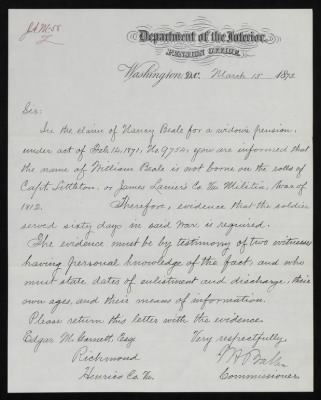 Department of the Interior,
PENSION OFFICE,
Washington D.C. March 15 1872
Sir:
In the claim of Nancy Beale for a widow's pension,
under act of Feb. 14, 1871, No 9752, you are informed that
the name of William Beale is not borne on the rolls of
Capt. Littleton, or James Lamers Co. Va. Militia, War of
1812. Therefore, evidence that the soldier
served sixty days in said war is required.
The evidence must be by testimony of two witnesses
having personal knowledge of the fact and who
must state dates of enlistment and discharge, their
own ages, and their means of information.
Please return this letter with the evidence.
Edgar M. Garnett, Esq Very respectfully,
Richmond
Henrico Co. Va. Commissioner.